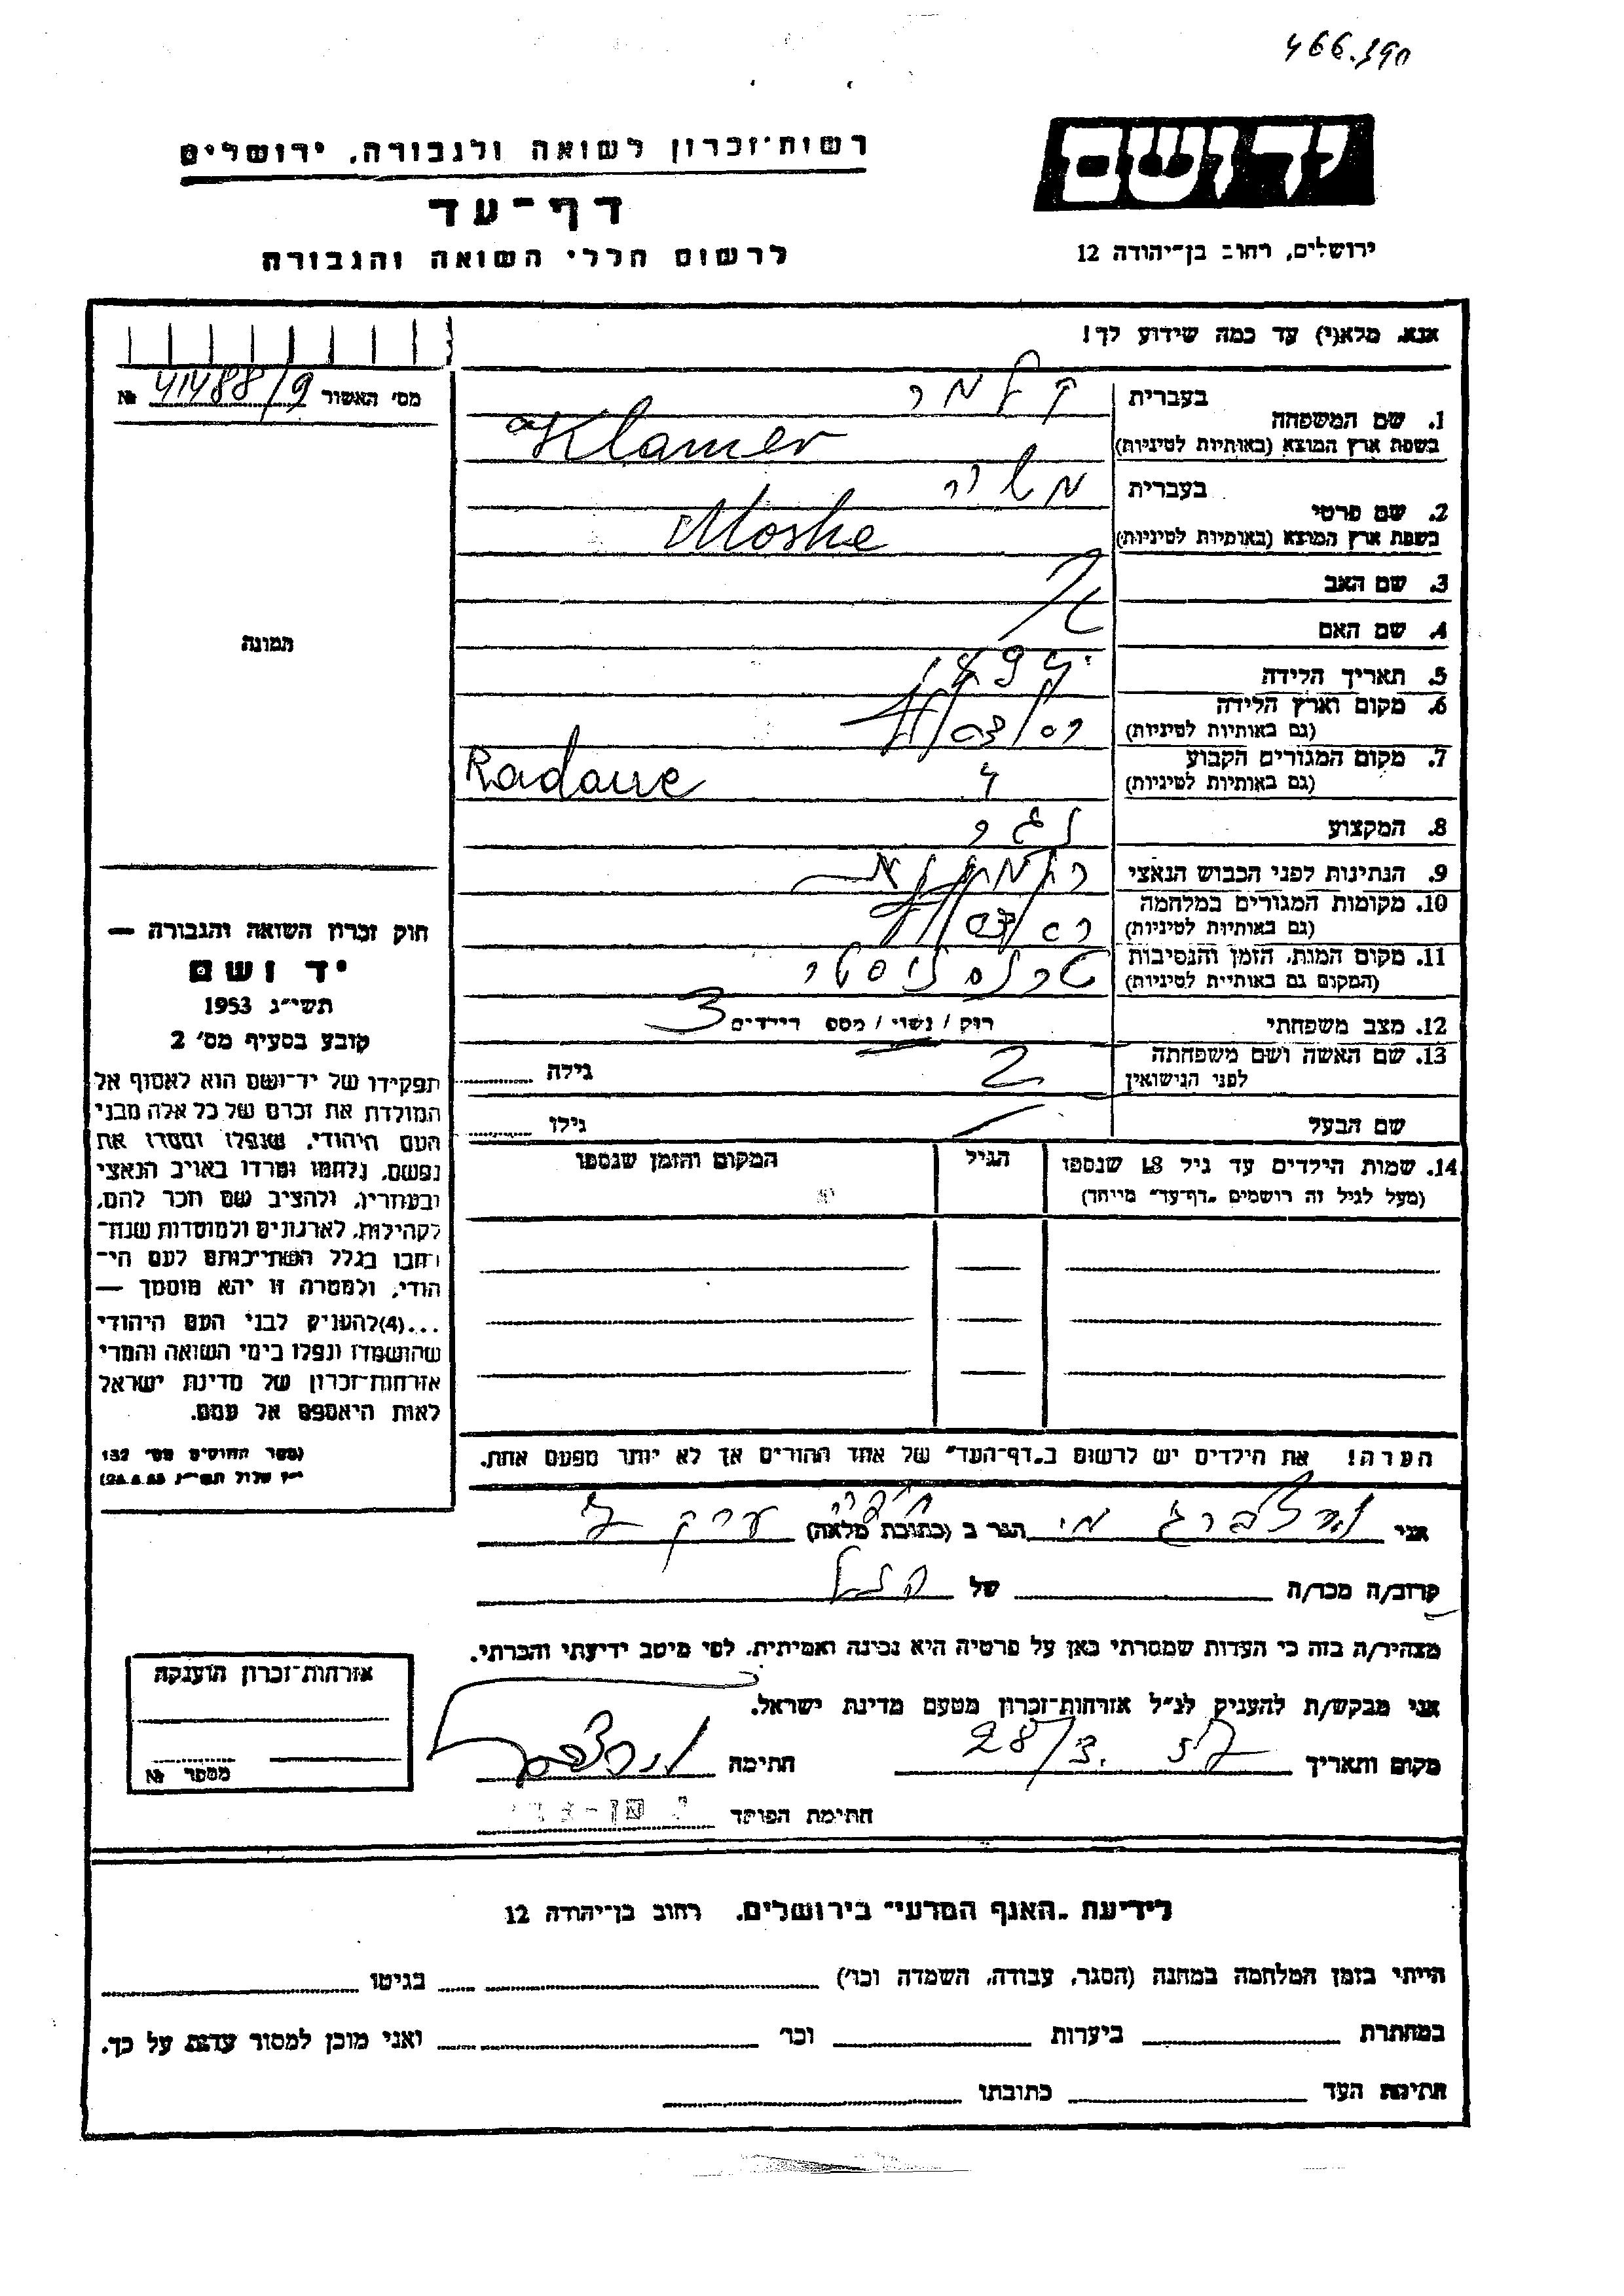 466.190
יד ושם
רשות־זכרון לשואה ולגבורה, ירושלים
דף־עד
לרשום חללי השואה והגבורה
ירושלים, רחוב בן־יהודה 12
אנא, מלא(י) עד כמה שידוע לך!
מס' האשור 41488/9 №
תמונה
1. שם המשפחה
בעברית קלמר
בשפת ארץ המוצא (באותיות לטיניות) Klamer
2. שם פרטי
בעברית משה
בשפת ארץ המוצא (באותיות לטיניות) Moshe
3. שם האב
4. שם האם
5. תאריך הלידה
6. מקום וארץ הלידה
(גם באותיות לטיניות)
7. מקום המגורים הקבוע
(גם באותיות לטיניות) Radaue
8. המקצוע
9. הנתינות לפני הכבוש הנאצי
10. מקומות המגורים במלחמה
(גם באותיות לטיניות)
11. מקום המות, הזמן והנסיבות
(המקום גם באותיות לטיניות)
12. מצב משפחתי רוק / נשוי / מספ הילדים 3
13. שם האשה ושם משפחתה
לפני הנישואין
גילה
שם הבעל גילו
14. שמות הילדים עד גיל 18 שנספו הגיל המקום והזמן שנספו
(מעל לגיל זה רושמים "דף־עד" מיוחד)
הערה! את הילדים יש לרשום ב"דף־העד" של אחד ההורים אך לא יותר מפעם אחת.
חוק זכרון השואה והגבורה —
יד ושם
תשי״ג 1953
קובע בסעיף מס' 2
תפקידו של יד־ושם הוא לאסוף אל
המולדת את זכרם של כל אלה מבני
העם היהודי, שנפלו ומסרו את
נפשם, נלחמו ומרדו באויב הנאצי
ובעוזריו, ולהציב שם וזכר להם,
לקהילות, לארגונים ולמוסדות שנח־
רבו בגלל השתייכותם לעם הי־
הודי, ולמטרה זו יהא מוסמך —
...(4) להעניק לבני העם היהודי
שהושמדו ונפלו בימי השואה והמרי
אזרחות־זכרון של מדינת ישראל
לאות היאספם אל עמם.
(ספר החוקים מס' 132
י״ז אלול תשי״ג 28.8.53)
אני הגר ב (כתובת מלאה)
קרוב/ה מכר/ה של
מצהיר/ה בזה כי העדות שמסרתי כאן על פרטיה היא נכונה ואמיתית, לפי מיטב ידיעתי והכרתי.
אני מבקש/ת להעניק לנ״ל אזרחות־זכרון מטעם מדינת ישראל.
מקום ותאריך 28/3. חתימה
חתימת הפוקד
אזרחות־זכרון הוענקה
מספר №
לידיעת "האגף המדעי" בירושלים, רחוב בן־יהודה 12
הייתי בזמן המלחמה במחנה (הסגר, עבודה, השמדה וכו') בגיטו
במחתרת ביערות וכו' ואני מוכן למסור עדות על כך.
חתימת העד כתובתו